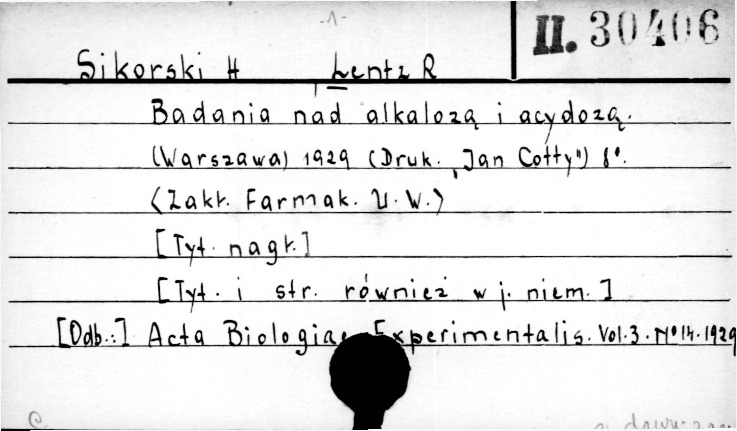 -1-
II. 30406
Sikorski H Lentz R
Badania nad alkalozą i acydozą.
(Warszawa) 1929 (Druk. „Jan Cotty") 8°.
<Zakł. Farmak. U. W.>
[Tyt. nagł.]
[Tyt. i str. również w j. niem.]
[Odb.:] Acta Biologiae Experimentalis. Vol. 3. No 14. 1929
C